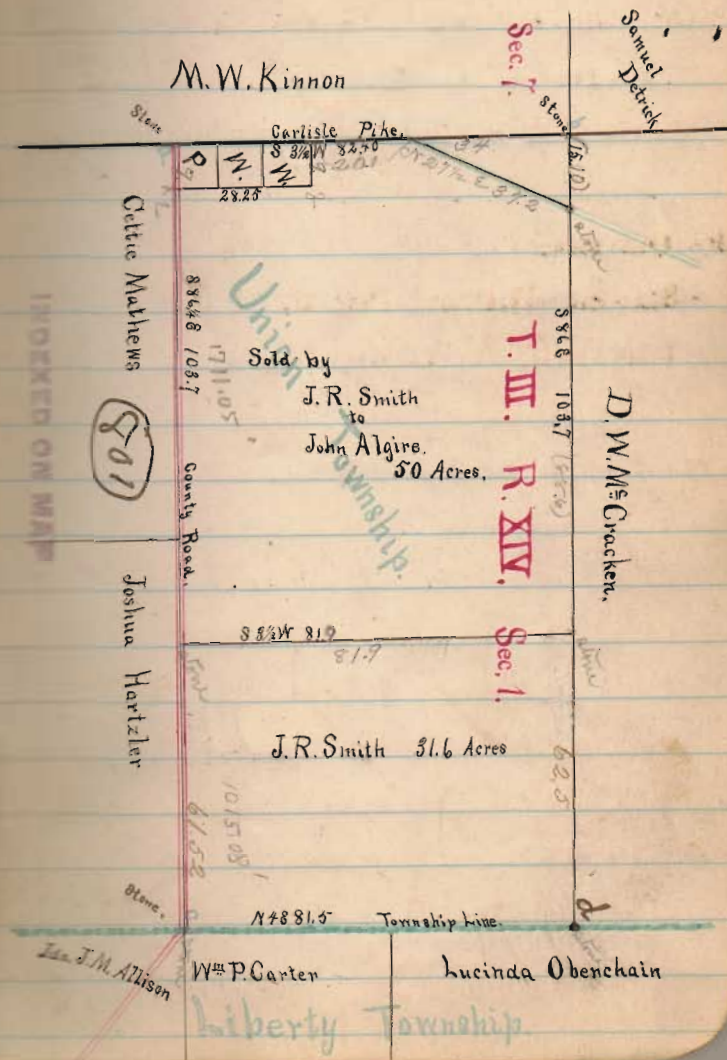 Samuel
Detrick
M. W. Kinnon
Sec. 7.
Stone
stone
(15.10)
Carlisle Pike.
34
S 3½ W 82.70
P
W.
W
28.25
stone
Celtie Mathews
S 86½ 8 103.7
1711.05
Union Township.
Sold by
J. R. Smith
to
John Algire.
50 Acres.
T. III. R. XIV. Sec. 1.
S 86 8 103.7
D. W. Mc Cracken.
INDEXED ON MAP
801
County Road.
Joshua Hartzler
S 8½ W 81.9
81.9
stone
stone
J. R. Smith 31.6 Acres
62.5
1015.08
61.52
Stone.
d
N 4 8 81.5 Township Line.
J. M. Allison
Wm P. Carter
Lucinda Obenchain
Liberty Township.